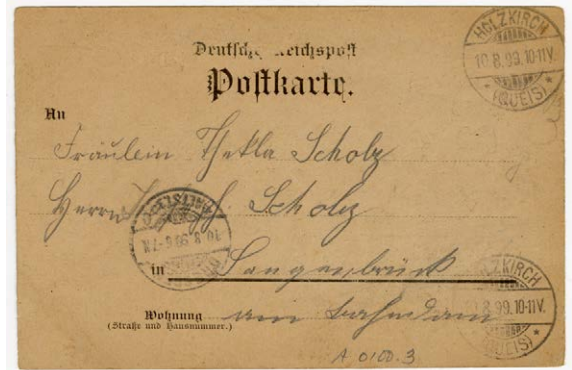 Deutsche Reichspost
Postkarte.
HOLZKIRCH
10.8.99.10-11V.
* (QUEIS) *
An
Fräulein Thekla Scholz
Herrn Scholz
10.8.99.6-7N.
in Langenbrück
HOLZKIRCH
10.8.99.10-11V.
(QUEIS) *
Wohnung am Bahndam
(Straße und Hausnummer.)
A 0100.3